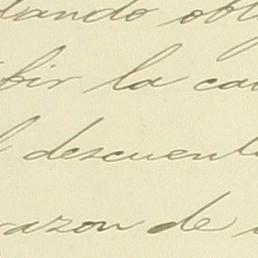 dando obl
bir la can
l descuent
razon de